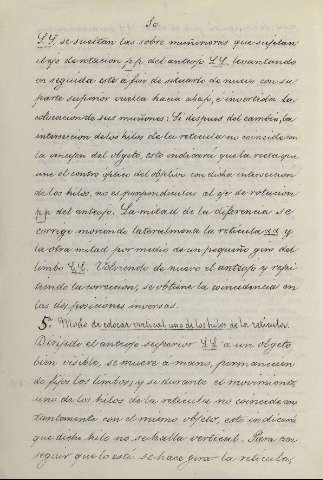 50
LL, se sueltan las sobre muñoneras que sujetan
el eje de rotacion pp del anteojo LL, levantando
en seguida este a fin de situarlo de nuevo con su
parte superior vuelta hacia abajo, é invertida la
colocacion de sus muñones: Si despues del cambio, la
interseccion de los hilos de la reticula no coincide con
la imagen del objeto, esto indicará que la recta que
une el centro optico del objetivo con dicha interseccion
de los hilos, no es perpendicular al eje de rotacion
pp del anteojo. La mitad de la diferencia se
corrige moviendo lateralmente la reticula xx y
la otra mitad por medio de un pequeño giro del
limbo LL. Volviendo de nuevo el anteojo y repi-
tiendo la correccion, se obtiene la coincidencia en
las dos posiciones inversas.
5º Modo de colocar vertical uno de los hilos de la reticula.
Dirijido el anteojo superior LL a un objeto
bien visible, se mueve a mano, permanecien-
do fijos los limbos; y si durante el movimiento,
uno de los hilos de la reticula no coincide cons-
tantemente con el mismo objeto, esto indicará
que dicho hilo no se halla vertical. Para con-
seguir que lo esté se hace girar la reticula,